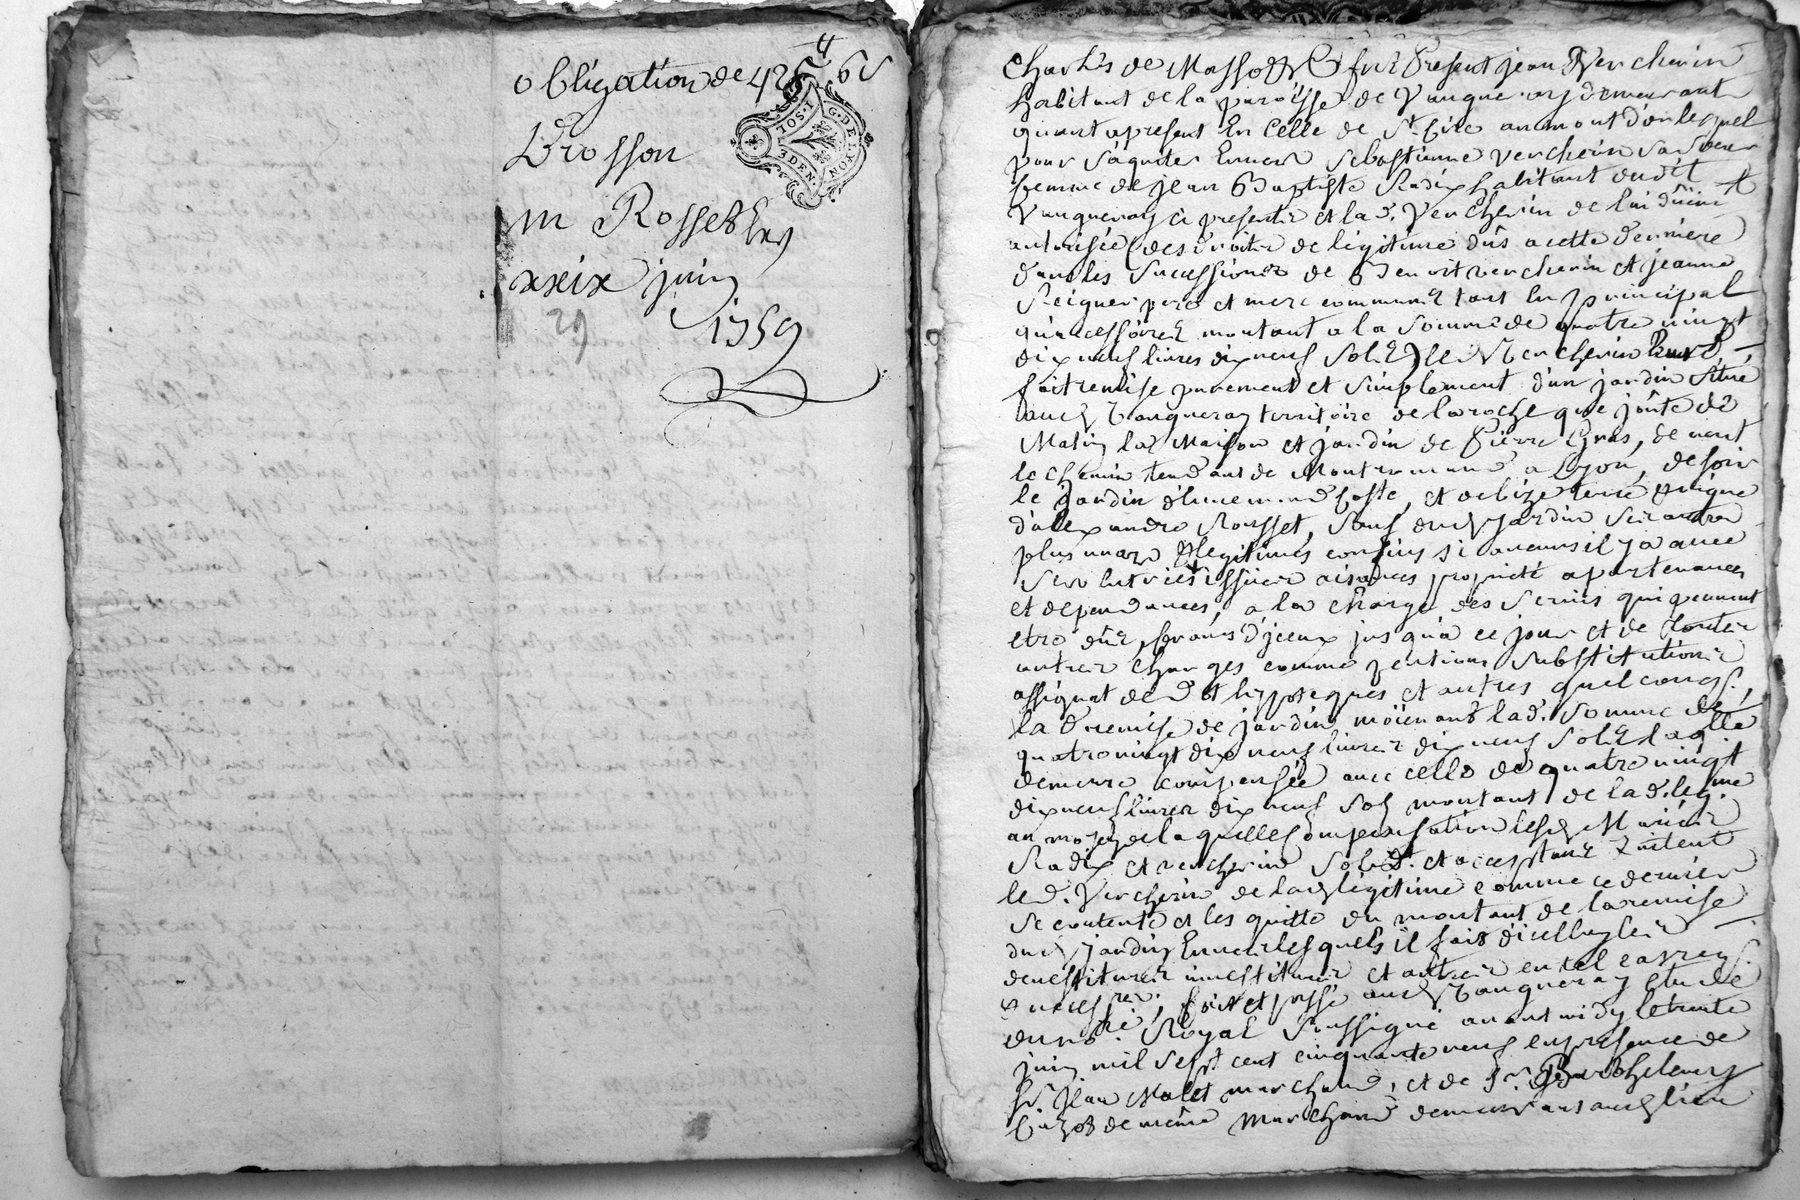 obligation de 425 ₶ 6 s
Brosson
G. DE LYON
TOS. I
3 DEN.
m Rosset
xxix juin
29
1759
Charles de Masso present jean Vercherin
habitant de la paroisse de Vaugneray demeurant
quant apresent En Celle de St Cire au mont d'or lequel
pour s'aquiter Envers Sebastienne Vercherin sa soeur
femme de jean Baptiste Radix habitant dudit
Vaugneray ci presente et lad. Vercherin de lui düement
autorisée (des droits de légitime dûs a cette derniere
dans les successions de Benoit vercherin et jeanne
pere et mere communs tant En principal
qu'accessoires montant a la somme de quatre vingt
dix neuf livres dix neuf sols) led. Vercherin
fait remise purement et simplement d'un jardin situé
aud. Vaugneray territoire de laroche que joûte de
Matin la Maison et jardin de Pierre Gras, de vent
le chemin tendant de Montromand a Lyon, de soir
le jardin d'Ennemond Coste, et de bize terre vigne
d'alexandre Rousset, sauf dud. jardin ses autres
plus vrais et legitimes confins si aucuns il y a avec
ses entrées issües aisances proprieté apartenances
et dependances, a la charge des servis qui peuvent
etre dûs, francs d'jceux jusqu'a ce jour et de toutes
autres charges comme pentions substitutions
assignat de d hypoteques et autres quelconqs.,
la d. remise de jardin moïenant lad. somme de
quatrevingt dix neuf livres dix neuf sols laqlle
demeure compensée avec celle de quatre vingt
dixneuf livres dix neuf sols montant de lad. legme
au moyen de laquelle compensation lesd. Mariés
Radix et vercherin solid. et acceptant quitent
le d. Vercherin de lad. légitime comme ce dernier
se contente et les quitte du montant de la remise
dud. jardin Envers lesquels il fait d'icelluy les
devestitures investitures et autres en tel cas req.
necess.res, fait et passé aud. Vaugneray Etude
du no.re Royal soussigné avant midy le trente
juin mil sept cent cinquante neuf en presence de
Sr. jean Malet marchand, et de Sr. Barthelemy
de même Marchand demeurants aud. lieu